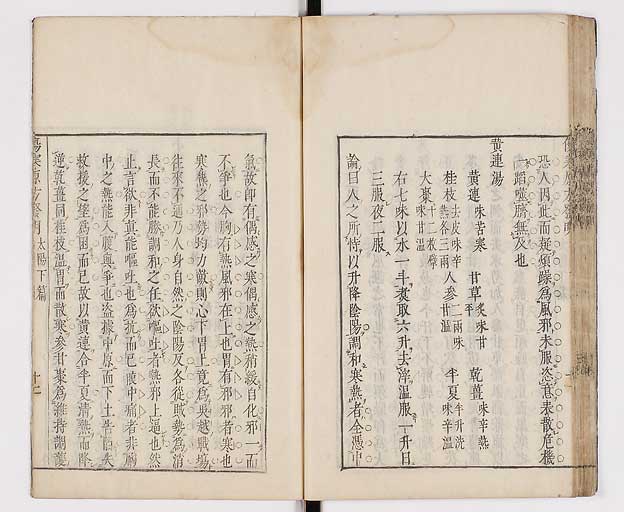 恐人因此而疑煩躁為風邪未服恣意表散危機
蹈噬臍無及也
黄連湯
黄連 味苦寒 甘草 炙味甘平 乾薑 味辛熱
桂枝 去皮味辛熱各三兩 人參 二兩味甘溫 半夏 半升洗味辛溫
大棗 十二枚擘味甘溫
右七味以水一斗煑取六升去滓溫服一升日
三服夜二服
論曰人之所恃以升降陰陽調和寒熱者全憑中
氣故即有偶感之寒偶感之熱稍緩自化邪一而
不爭也今胸有熱風邪在上也胃有邪邪者寒也
寒熱之邪勢均力敵則心下胃上竟為吳越戰場
往來不通乃人身自然之陰陽反各從賊勢為消
長而不能勝調和之任欲嘔吐者熱邪上逼也然
止言欲非真能嘔吐也為抗而已腹中痛者非胸
中之熱能入腹與爭也盜據中原而下土告
救援之望為困而已故以黄連合半夏清熱而降
逆乾薑同桂枝溫胃而散寒參甘棗為維持調護
傷寒原方發明 太陽下篇